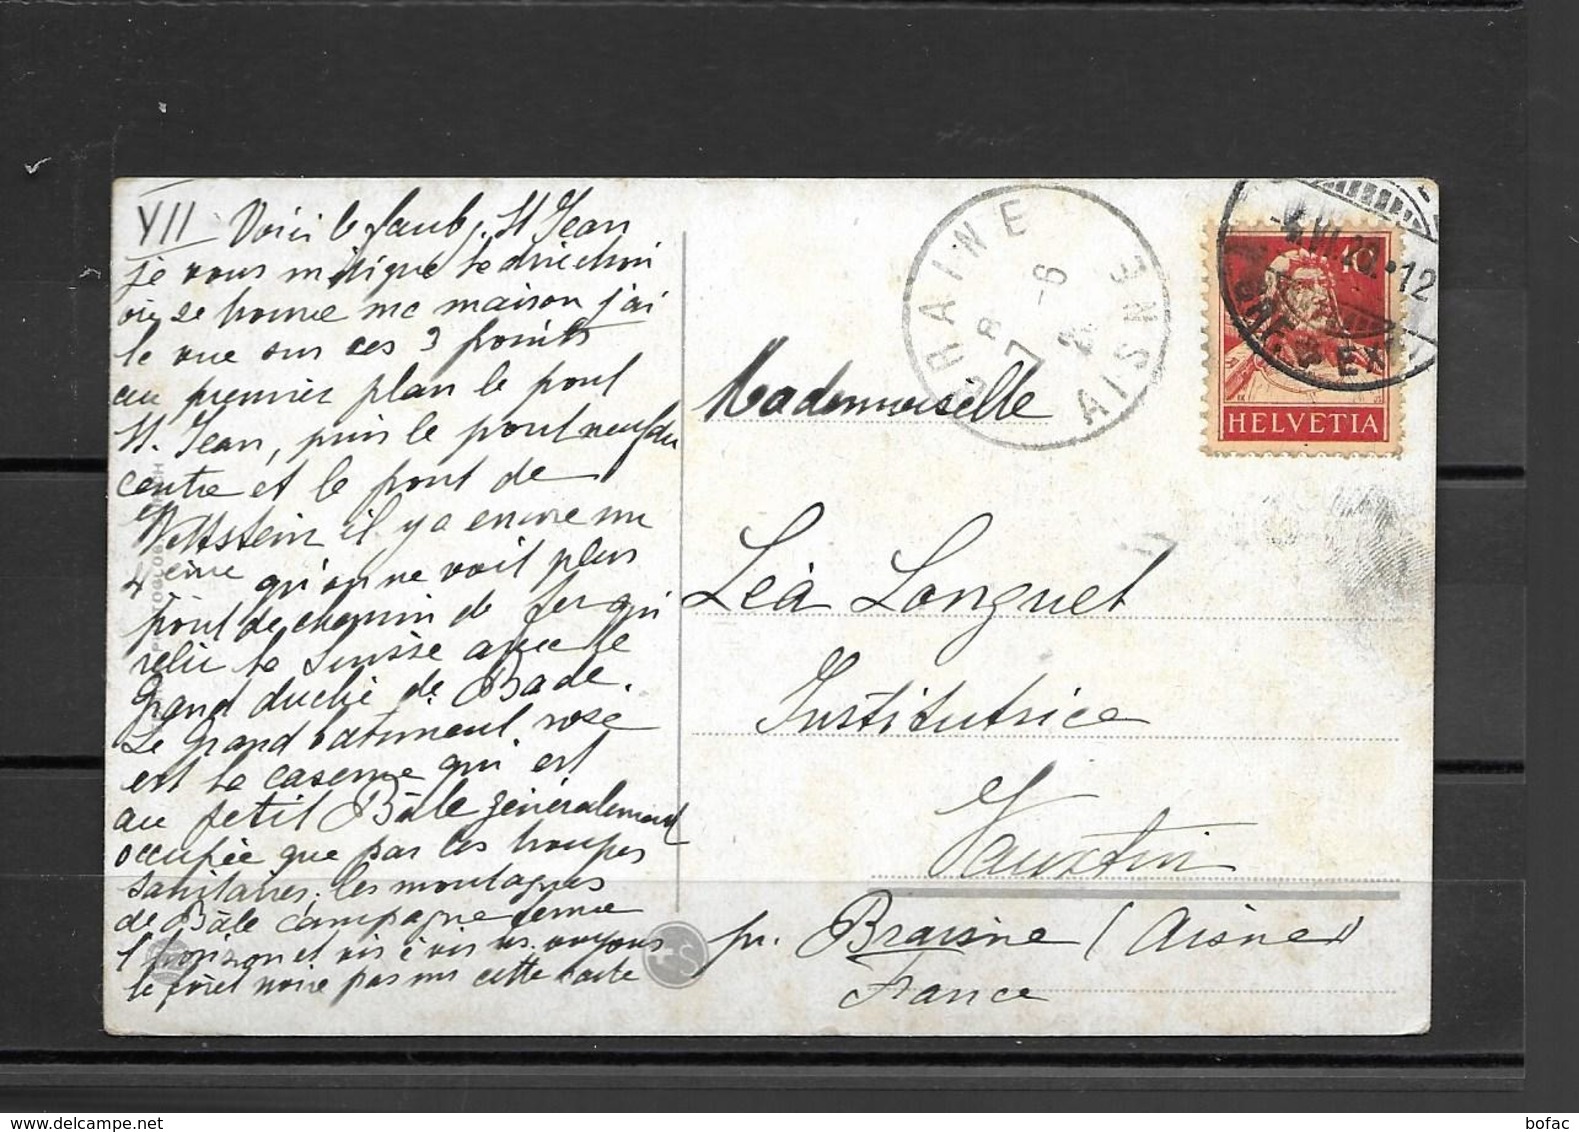 VII Voici le faubg. St Jean
je vous indique la direction
où se trouve ma maison j'ai
la vue sur ces 3 points
au premier plan le pont
St. Jean, puis le pont neuf du
centre et le pont de
Wettstein il y a encore un
4ème qu'on ne voit plus
pont de chemin de fer qui
relie la Suisse avec le
Grand duché de Bade.
Le Grand bâtiment rose
est la caserne qui est
au petit Bâle généralement
occupée que par les troupes
sanitaires; les montagnes
de Bâle campagne ferme
l'horizon et vis à vis ns. voyons
la forêt noire pas sur cette carte
BRAINE
AISNE
8 -6
HELVETIA
10
EXP
Mademoiselle
Léa Longuet
Institutrice
Vauxtin
pr. Braisne (Aisne)
France
bofac